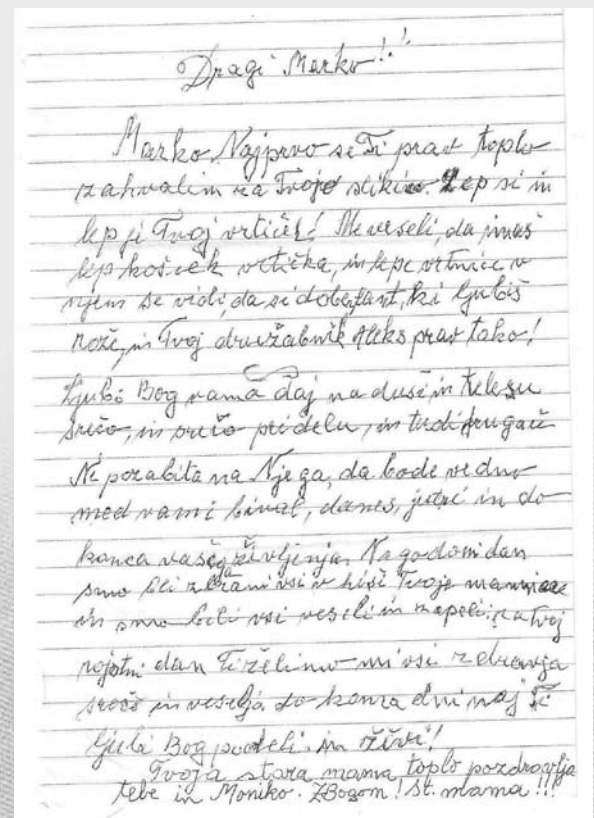 Dragi Marko!!!
Marko, Najprvo se Ti prav toplo
zahvalim za Tvojo slikico. Lep si in
lep je Tvoj vrtiček! Me veseli, da imaš
lep košček vrtička, in lepe vrtnice v
njem se vidi, da si dober fant, ki ljubiš
rože, in Tvoj družabnik Aleks prav tako!
Ljubi Bog vama daj na duši in telesu
srečo, in srečo pri delu, in tudi drugače
Ne pozabita na Njega, da bode vedno
med vami bival, danes, jutri in do
konca vašega življenja. Na godovni dan
smo bli zbrani vsi v hiši Tvoje mamice
in smo bili vsi veseli in zapeli: za tvoj
rojstni dan Ti želimo mi vsi zdravja
srečo in veselja do konca dni naj Ti
ljubi Bog podeli in živi!
Tvoja stara mama, toplo pozdravlja
tebe in Moniko. ZBogom! St. mama!!!